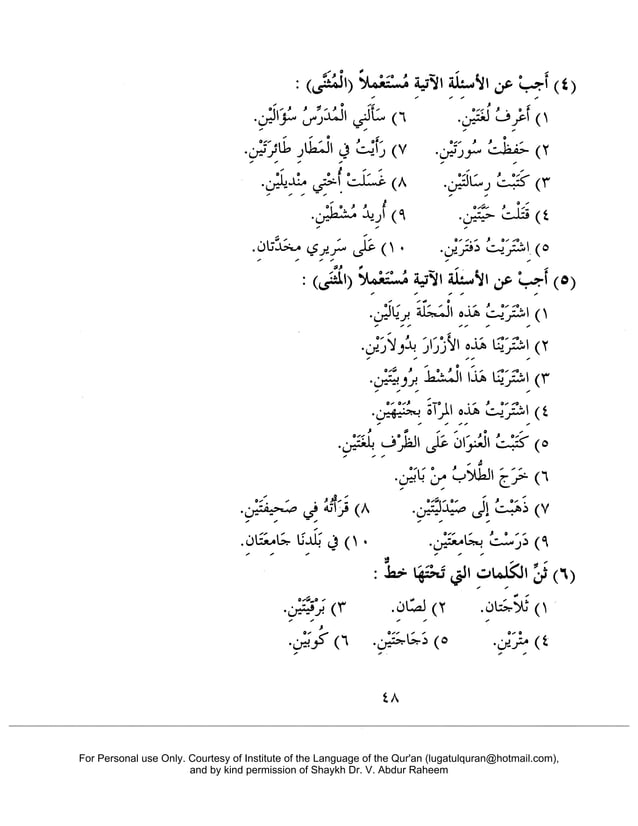 (٤) أَجِبْ عن الأسئِلَةِ الآتيةِ مُسْتَعْمِلاً (الْمُثَنَّى) :
١) أَعْرِفُ لُغَتَيْنِ. ٦) سَأَلَنِي الْمُدَرِّسُ سُؤَالَيْنِ.
٢) حَفِظْتُ سُورَتَيْنِ. ٧) رَأَيْتُ فِي الْمَطَارِ طَائِرَتَيْنِ.
٣) كَتَبْتُ رِسَالَتَيْنِ. ٨) غَسَلَتْ أُخْتِي مِنْدِيلَيْنِ.
٤) قَتَلْتُ حَيَّتَيْنِ. ٩) أُرِيدُ مُشْطَيْنِ.
٥) اِشْتَرَيْتُ دَفتَرَيْنِ. ١٠) عَلَى سَرِيرِي مِخَدَّتانِ.
(٥) أَجِبْ عن الأسئِلَةِ الآتيةِ مُسْتَعْمِلاً (الْمُثَنَّى) :
١) اِشْتَرَيْتُ هَذِهِ الْمَجَلَّةَ بِرِيَالَيْنِ.
٢) اِشْتَرَيْنَا هَذِهِ الأَزْرَارَ بِدُولاَرَيْنِ.
٣) اِشْتَرَيْنَا هَذَا الْمُشْطَ بِرُوبِيَّتَيْنِ.
٤) اِشْتَرَيْتُ هَذِهِ المِرْآةَ بِجُنَيْهَيْنِ.
٥) كَتَبْتُ الْعُنوَانَ عَلَى الظَّرْفِ بِلُغَتَيْنِ.
٦) خَرَجَ الطُّلاَّبُ مِنْ بَابَيْنِ.
٧) ذَهَبْتُ إِلَى صَيْدَلِيَّتَيْنِ. ٨) قَرَأْتُهُ فِي صَحِيفَتَيْنِ.
٩) دَرَسْتُ بِجَامِعَتَيْنِ. ١٠) فِي بَلَدِنَا جَامِعَتَانِ.
(٦) ثَنِّ الكَلِماتِ التي تَحْتَهَا خطٌّ :
١) ثَلاَّجَتانِ. ٢) لِصَّانِ. ٣) بَرْقِيَّتَيْنِ.
٤) مِتْرَيْنِ. ٥) دَجَاجَتَيْنِ. ٦) كُوبَيْنِ.
٤٨
For Personal use Only. Courtesy of Institute of the Language of the Qur'an (lugatulquran@hotmail.com),
and by kind permission of Shaykh Dr. V. Abdur Raheem